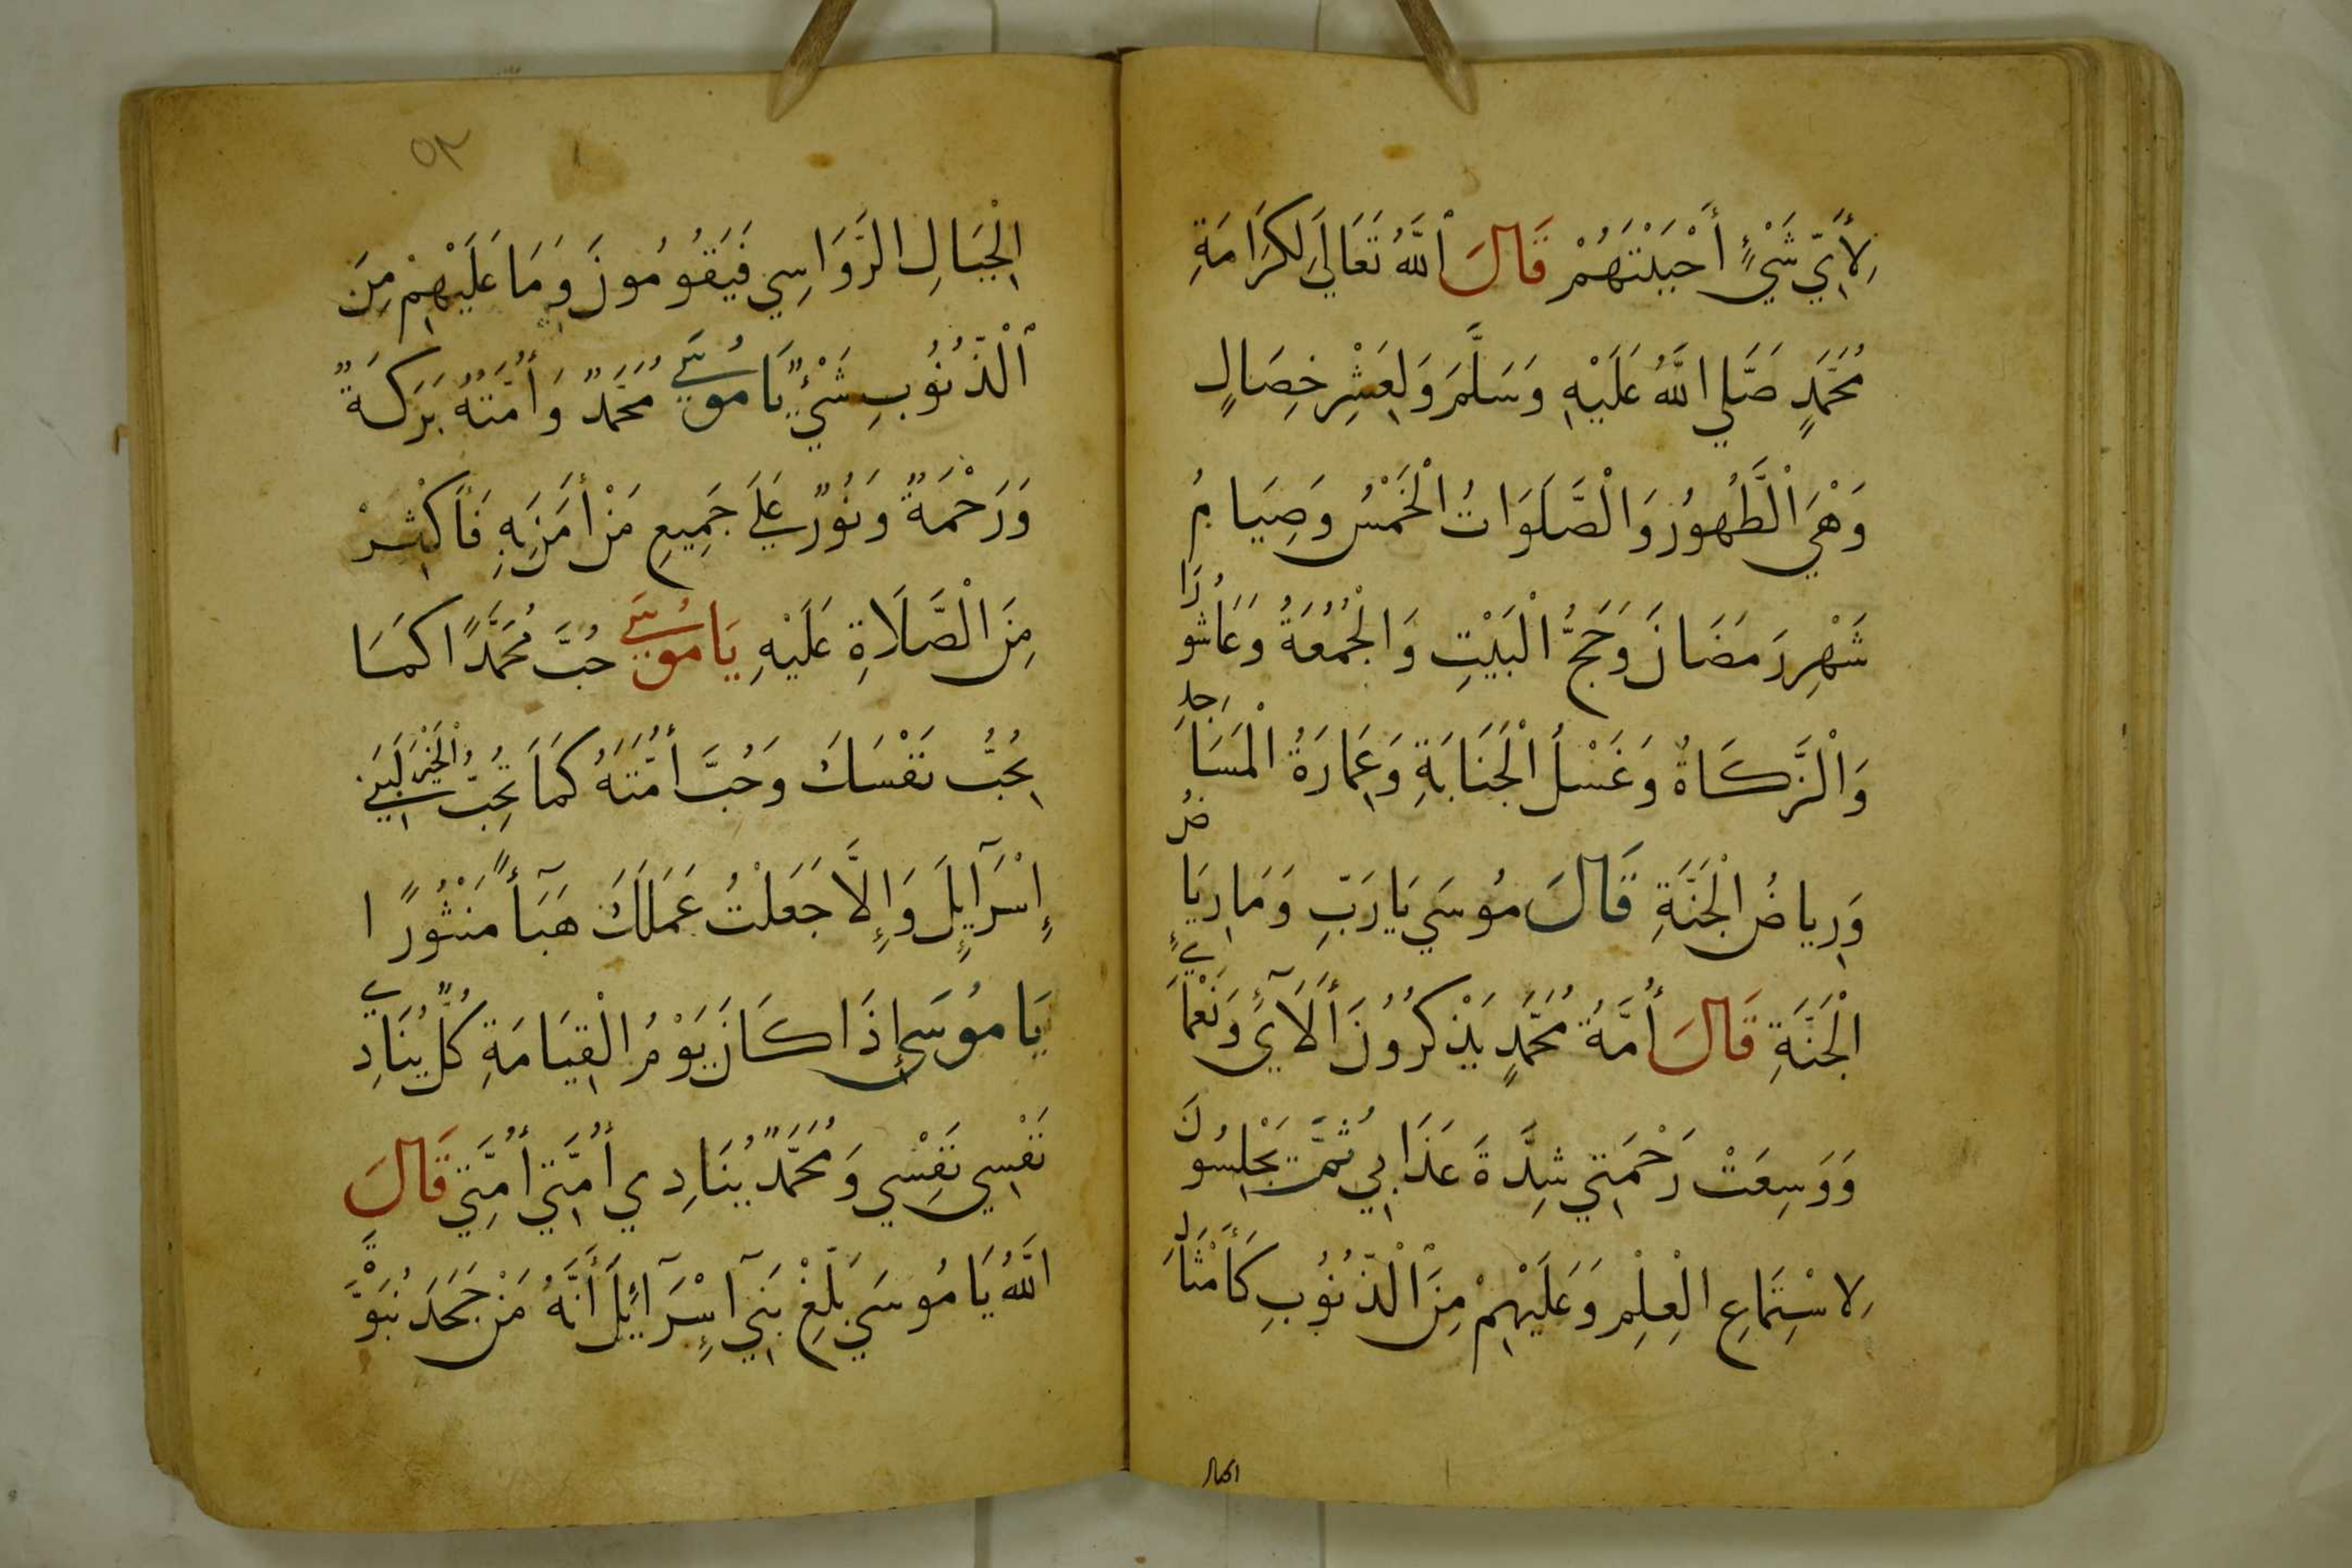 لِأَيِّ شَيْءٍ أَحْبَبْتَهُمْ قَالَ ٱللَّهُ تَعَالَي لِكَرَامَةِ
مُحَمَّدٍ صَلَّي اللَّهُ عَلَيْهِ وَسَلَّمَ وَلِعَشْرِ خِصَالٍ
وَهْيَ الْطَّهُورُ وَالْصَّلَوَاتُ الْخَمْسُ وَصِيَامُ
شَهْرِ رَمَضَانَ وَحَجُّ الْبَيْتِ وَالْجُمُعَةُ وَعَاشُورَا
وَالْزَّكَاةُ وَغَسْلُ الْجَنَابَةِ وَعِمَارَةُ الْمَسَاجِدِ
وَرِياضُ الْجَنَّةِ قَالَ مُوسَي يَا رَبِّ وَمَا رِيَاضُ
الْجَنَّةِ قَالَ أُمَّةُ مُحَمَّدٍ يَذْكُرُونَ أَلَآءِي وَنَعْمَاءِي
وَوَسِعَتْ رَحْمَتِي شِدَّةَ عَذَابِي ثُمَّ يَجْلِسُونَ
لِاسْتِمَاعِ الْعِلْمِ وَعَلَيْهِمْ مِنَ ٱلْذُّنُوبِ كَأَمْثَالِ
الجبال
٥٢
الْجِبَالِ الرَّوَاسِي فَيَقُومُونَ وَمَا عَلَيْهِمْ مِنَ
ٱلْذُّنُوبِ شَيْءٌ يَا مُوسَي مُحَمَّدٌ وَأُمَّتُهُ بَرَكَةٌ
وَرَحْمَةٌ وَنُورٌ عَلَي جَمِيعِ مَنْ أٰمَنَ بِهِ فَأَكْثِرْ
مِنَ الْصَّلَاةِ عَلَيْهِ يَا مُوسَي حُبَّ مُحَمَّدًا كَمَا
تُحِبُّ نَفْسَكَ وَحُبَّ أُمَّتَهُ كَمَا تُحِبُّ الْخَيْرَ لِبَنِي
إِسْرَآئِلَ وَإِلَّا جَعَلْتُ عَمَلَكَ هَبَآءً مَنْثُورًا
يَا مُوسَي إِذَا كَانَ يَوْمُ الْقِيَامَةِ كُلٌّ يُنَادِي
نَفْسِي نَفْسِي وَمُحَمَّدٌ يُنَادِي أُمَّتِي أُمَّتِي قَالَ
اللَّهُ يَا مُوسَي بَلِّغْ بَنِي اسْرَآئِلَ أَنَّهُ مَنْ جَحَدَ نُبَوَّةَ